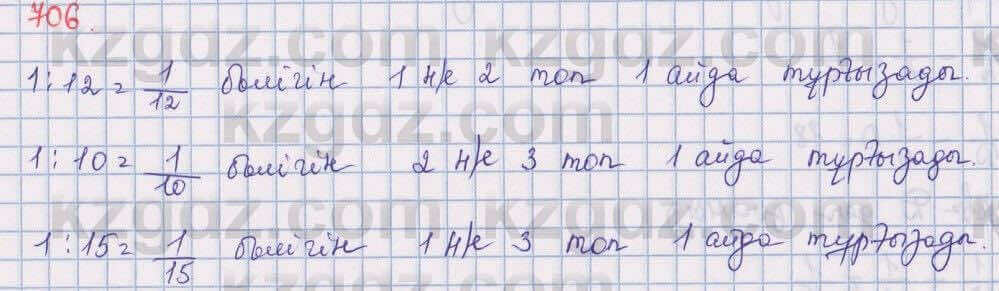 706.
1:12=1/12 бөлігін 1 н/е 2 топ 1 айда тұрғызады.
1:10=1/10 бөлігін 2 н/е 3 топ 1 айда тұрғызады.
1:15=1/15 бөлігін 1 н/е 3 топ 1 айда тұрғызады.
kzgdz.com kzgdz.com
kzgdz.com
kzgdz.com kzgdz.com